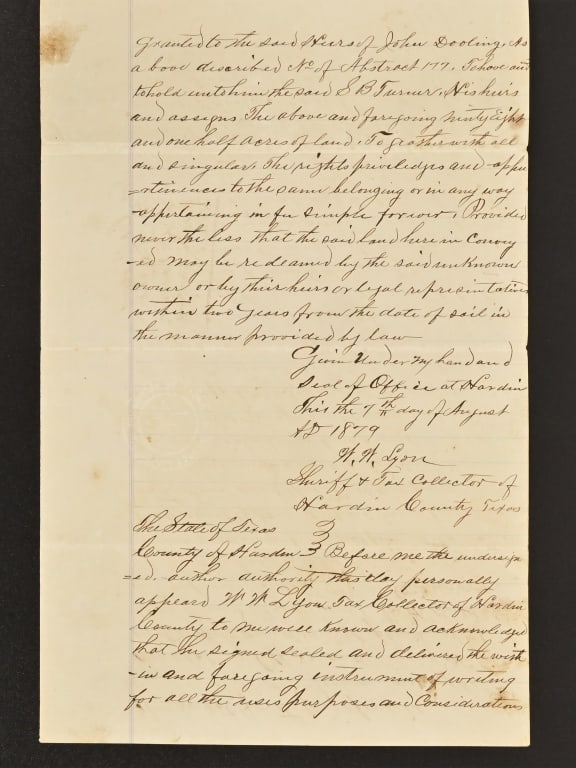 Granted to the said Heirs of John Dooling. As
above described No of Abstract 177. To have and
to hold unto him the said S B Turner, His heirs
and assigns The above and foregoing ninty Eight
and one half acres of land. To geather with all
and singular, The rights priviledges and appu
=rtinences to the same belonging or in any way
appertaining in fee simple forever, Provided
never the less that the said land here in Convey
-ed may be redeamed by the said unKnown
owner or by their heirs or legal representatives
within two years from the date of sail in
the manner provided by law
Given Under My hand and
Seal of Office at Hardin
This the 7th day of August
AD 1879
W. W. Lyon
Sheriff & Tax Collector of
Hardin County Texas
The State of Texas
County of Harden Before me the undersign
=ed author authority this day personally
appeard W W Lyon Tax Collector of Hardin
County to me well Known and acknowledged
that he signed sealed and delivered the with
-in and foregoing instrument of writing
for all the uses purposes and Considerations